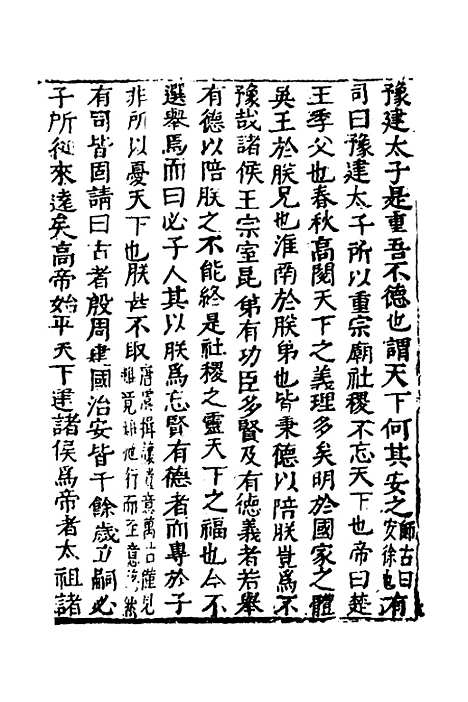 豫建太子是重吾不德也謂天下何其安之師古曰安徐也有
司曰豫建太子所以重宗廟社稷不忘天下也帝曰楚
王季父也春秋高閱天下之義理多矣明於國家之體
吳王於朕兄也淮南於朕弟也皆秉德以陪朕豈爲不
豫哉諸侯王宗室昆弟有功臣多賢及有德義者若舉
有德以陪朕之不能終是社稷之靈天下之福也今不
選舉焉而曰必子人其以朕爲忘賢有德者而專於子
非所以憂天下也朕甚不取唐虞揖讓意萬古僅見雖行而至意
有司皆固請曰古者殷周建國治安皆千餘歲立嗣必
子所從來遠矣高帝始平天下建諸侯爲帝者太祖諸